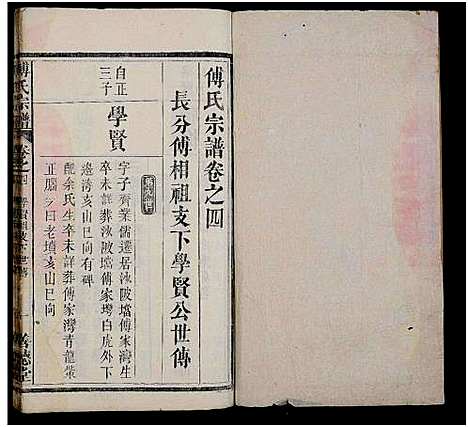 傅氏宗譜卷之四
長分傅相祖支下學賢公世傳
自正
三子
學賢
字子齊業儒遷居汝陂壋傅家灣生
卒未詳葬汝陂壋傅家灣白虎外下
邉湾亥山巳向有碑
配余氏生卒未詳葬傅家灣青龍嘴
正腦名曰老墳亥山巳向
傅氏宗譜
卷之四